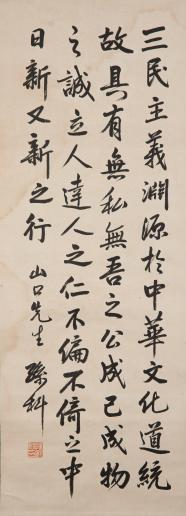 三民主義淵源於中華文化道統
故具有無私無吾之公成己成物
之誠立人達人之仁不偏不倚之中
日新又新之行
山口先生
孫科